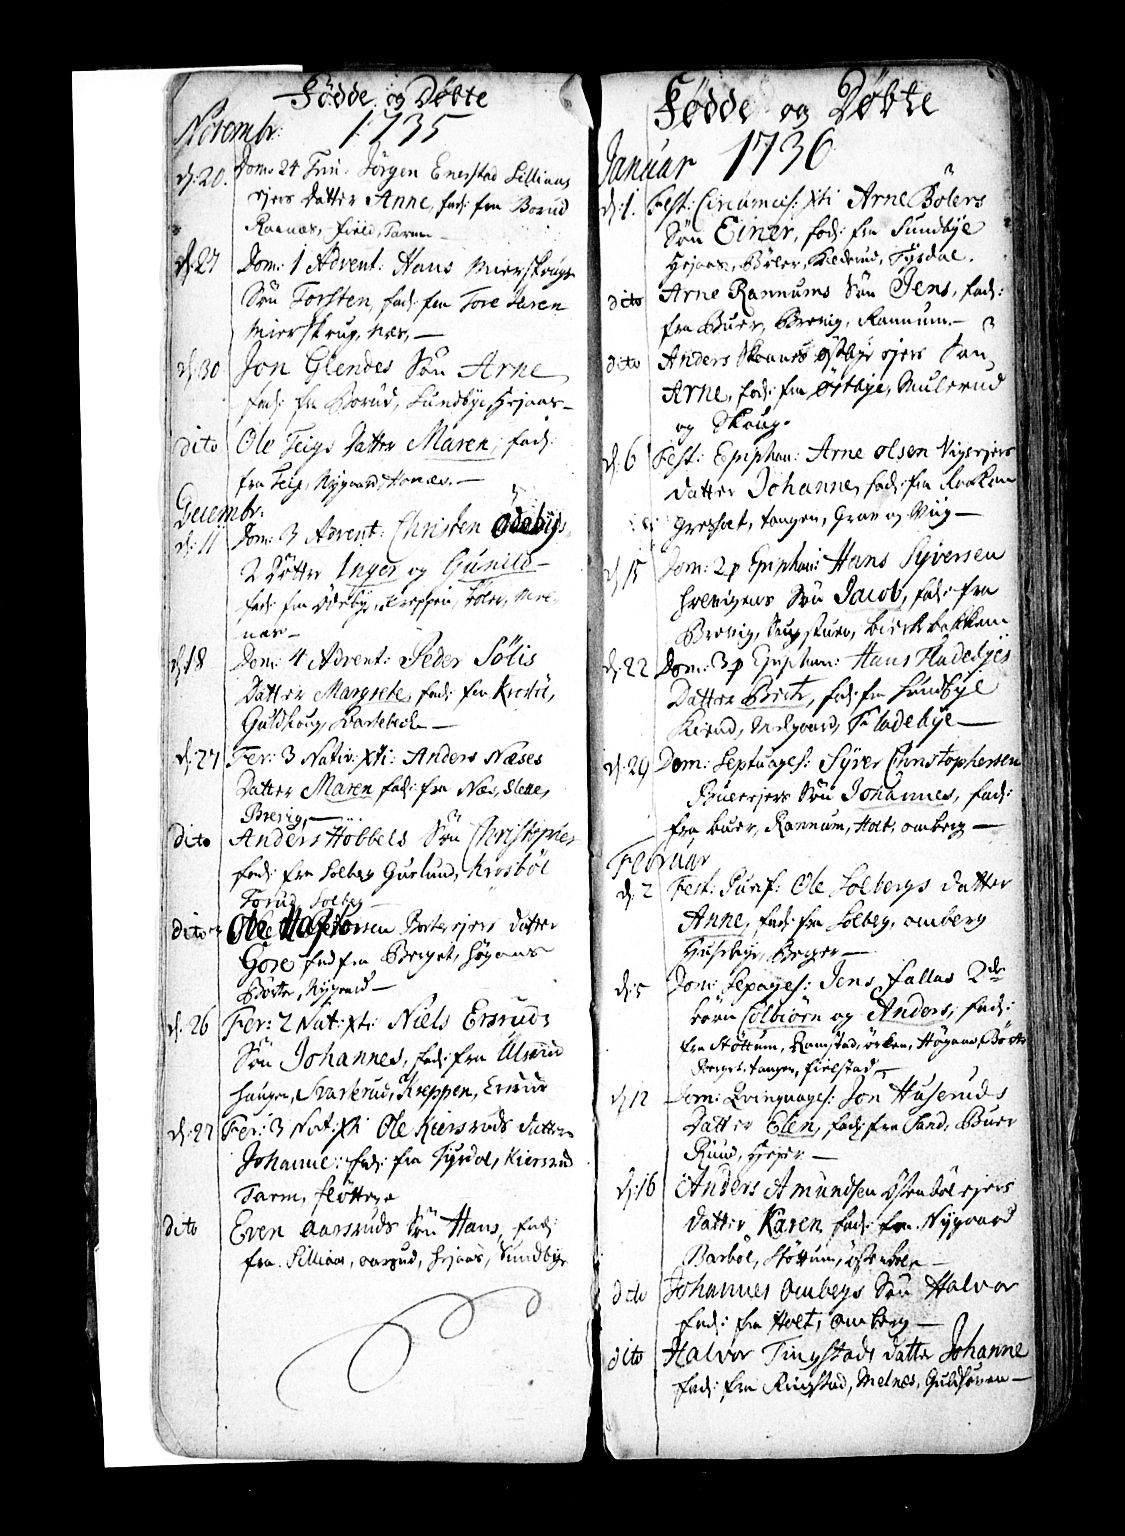 Fødde og Døbte
Novembr: 1735
d: 20. Dom: 24 Trin: Jörgen Enerstad Lilliaas
ejers datter Anne, fad: fra Borud
Raanæs, field, Tarm
d: 27 Dom: 1 Advent: Hans Mierskougs
Søn Torsten, fad: fra Tore
Mierskrug, næs, —
d: 30 Jon Glendes Søn Arne
fad: fra Borud, Sundbye, Hejaas —
dito Ole Teigs datter Maren, fad:
fra Teig, Nygaard, Honæs. —
Decembr:
d: 11 Dom: 3 Advent: Christen Ödebyes
2 Døttre Inger og Gunild —
fad: fra Ödebye, Kreppen,
næs —
d: 18 Dom: 4 Advent: Peder Solis
Datter Margrete, fad: fra
Guldhoug, —
d: 27 Fer: 3 Nativ: xti: Anders Næses
Datter Maren fad: fra Næs, Slette,
Brevig, —
dito Anders Hobbels Søn Christopher
fad: fra Solberg Krosböl
Torud, Solberg —
dito Ole datter
Gore fad fra Berget, Högaas
Børte, Nygaard —
d: 26 Fer: 2 Nat: xti: Niels Ersruds
Søn Johannes, fad: fra Ulsrud
haugen, Svarterud, Kreppen, Ersrud
d: 27 Fer: 3 Nat: xti Ole Kiersruds datter
Johanne: fad: fra Tysdal, Kiersrud
Tarm, fløtten
dito Even Aarsruds Søn Hans, fad:
fra Lilliaas, Aarsrud, Hejaas, Sundbye
Fødde og Døbte
Januar 1736
d: 1. Fest: Circumcis: xti Arne Bölers
Søn Einer, fad: fra Sundbye
Hejaas, Böler, Kilderud, Tysdal.
dito Arne Rannums Søn Jens, fad:
fra Buer, Brevig, Rannum. —
dito Anders Østbye ejers Søn
Arne, fad: fra Østbye, Mulerud
og Skoug.
d: 6 Fest: Epiphan: Arne Olsen Vigsejers
datter Johanne, fad: fra
tangen, Grav og Wiig —
d: 15 Dom: 2 p Epiphan: Hans Syversen
Søn Jacob, fad: fra
Brevig, birckebakken
d: 22 Dom: 3 p Epiphan: Hans Fladebyes
Datter Brite, fad: fra Sundbye
Fladebye —
d: 29 Dom: Septuages: Syver Christophersen
Buerejers Søn Johannes, fad:
fra buer, Rannum, Holt, omberg —
Februar
d: 2 Fest: Purif: Ole Solbergs datter
Anne, fad: fra Solberg, omberg
Huseby, Berger —
d: 5 Dom: Sexages: Jens fallas 2de
börn Colbiörn og Anders, fad:
fra Støttum, Ramstad, ørken, Högaas, Börte
Berget, tangen, fielstad —
d: 12 Dom: Qvinquages: Jon Huseruds
Datter Elen, fad: fra Sand, Buer
Ruud, —
d: 16 Anders Amundsen Østenböl ejers
datter Karen fad: fra Nygaard
Barböl, Støttum, østenböl —
dito Johannes ombergs Søn Halvor
fad: fra Holt, omberg —
dito Halvor Tingstads datter Johanne
fad: fra Ringstad, Melnes, Guldhoven —